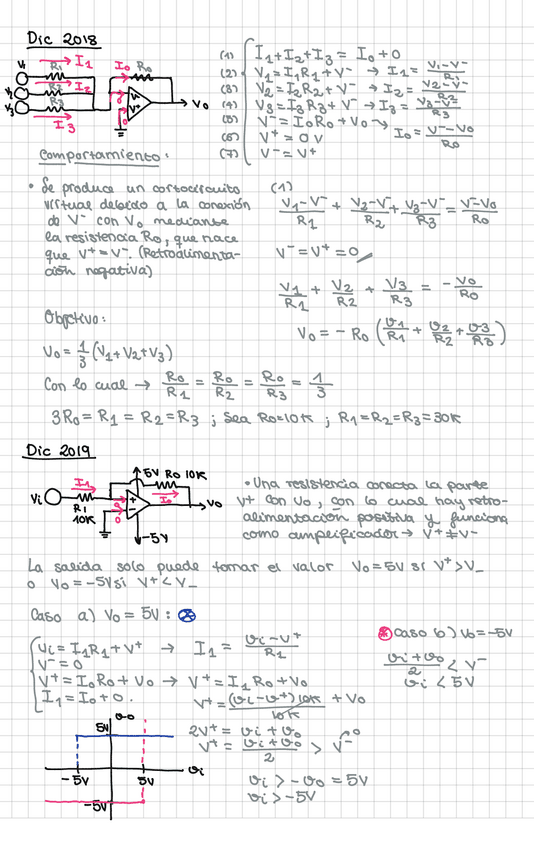 Dic 2018
V₁ R₁ I₁
V₂ R₂ I₂
V₃ R₃ I₃
I₀ R₀
V⁻ V⁺ V₀
(1) I₁+I₂+I₃ = I₀+0
(2) V₁=I₁R₁+V⁻ → I₁ = (V₁-V⁻)/R₁
(3) V₂=I₂R₂+V⁻ → I₂ = (V₂-V⁻)/R₂
(4) V₃=I₃R₃+V⁻ → I₃ = (V₃-V⁻)/R₃
(5) V⁻=I₀R₀+V₀ → I₀ = (V⁻-V₀)/R₀
(6) V⁺ = 0V
(7) V⁻=V⁺
Comportamiento:
• Se produce un cortocircuito
virtual debido a la conexión
de V⁻ con V₀ mediante
la resistencia R₀, que hace
que V⁺=V⁻. (Retroalimenta-
ción negativa)
(1)
(V₁-V⁻)/R₁ + (V₂-V⁻)/R₂ + (V₃-V⁻)/R₃ = (V⁻-V₀)/R₀
V⁻=V⁺=0
V₁/R₁ + V₂/R₂ + V₃/R₃ = -V₀/R₀
V₀ = - R₀ (v₁/R₁ + v₂/R₂ + v₃/R₃)
Objetivo:
V₀ = 1/3 (V₁+V₂+V₃)
Con lo cual → R₀/R₁ = R₀/R₂ = R₀/R₃ = 1/3
3R₀ = R₁ = R₂ = R₃ ; sea R₀=10K ; R₁=R₂=R₃=30K
Dic 2019
Vi I₁ R₁ 10K
5V R₀ 10K
I₀ V₀
-5V
• Una resistencia conecta la parte
V⁺ con V₀, con lo cual hay retro-
alimentación positiva y funciona
como amplificador → V⁺≠V⁻
La salida solo puede tomar el valor V₀=5V si V⁺>V_
o V₀=-5V si V⁺<V_
Caso a) V₀ = 5V:
Vi = I₁R₁+V⁺ → I₁ = (vi-V⁺)/R₁
V⁻=0
V⁺=I₀R₀+V₀ → V⁺=I₁R₀+V₀
I₁=I₀+0.
V⁺=(vi-v⁺)10K/10K + V₀
2V⁺ = vi+v₀
V⁺ = (vi+v₀)/2 > V⁻ 0
vi > -v₀ = 5V
vi > -5V
caso b) V₀=-5V
(vi+v₀)/2 < V⁻
vi < 5V
v₀
5V
-5V 5V vi
-5V